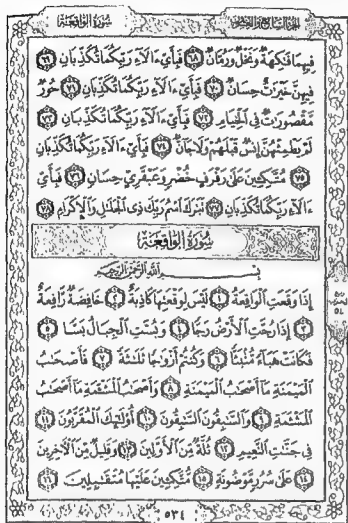 سُورَةُ الوَاقِعَةِ الجزء السابع والعشرون
فِيهِمَا فَٰكِهَةٌ وَنَخْلٌ وَرُمَّانٌ ٦٨ فَبِأَيِّ ءَالَآءِ رَبِّكُمَا تُكَذِّبَانِ ٦٩
فِيهِنَّ خَيْرَٰتٌ حِسَانٌ ٧٠ فَبِأَيِّ ءَالَآءِ رَبِّكُمَا تُكَذِّبَانِ ٧١ حُورٌ
مَّقْصُورَٰتٌ فِي ٱلْخِيَامِ ٧٢ فَبِأَيِّ ءَالَآءِ رَبِّكُمَا تُكَذِّبَانِ ٧٣
لَمْ يَطْمِثْهُنَّ إِنسٌ قَبْلَهُمْ وَلَا جَآنٌّ ٧٤ فَبِأَيِّ ءَالَآءِ رَبِّكُمَا تُكَذِّبَانِ
٧٥ مُتَّكِـِٔينَ عَلَىٰ رَفْرَفٍ خُضْرٍ وَعَبْقَرِيٍّ حِسَانٍ ٧٦ فَبِأَيِّ
ءَالَآءِ رَبِّكُمَا تُكَذِّبَانِ ٧٧ تَبَٰرَكَ ٱسْمُ رَبِّكَ ذِي ٱلْجَلَٰلِ وَٱلْإِكْرَامِ ٧٨
سُورَةُ الوَاقِعَةِ
بِسْمِ ٱللَّهِ ٱلرَّحْمَٰنِ ٱلرَّحِيمِ
إِذَا وَقَعَتِ ٱلْوَاقِعَةُ ١ لَيْسَ لِوَقْعَتِهَا كَاذِبَةٌ ٢ خَافِضَةٌ رَّافِعَةٌ
٣ إِذَا رُجَّتِ ٱلْأَرْضُ رَجًّا ٤ وَبُسَّتِ ٱلْجِبَالُ بَسًّا ٥
فَكَانَتْ هَبَآءً مُّنۢبَثًّا ٦ وَكُنتُمْ أَزْوَٰجًا ثَلَٰثَةً ٧ فَأَصْحَٰبُ
ٱلْمَيْمَنَةِ مَآ أَصْحَٰبُ ٱلْمَيْمَنَةِ ٨ وَأَصْحَٰبُ ٱلْمَشْـَٔمَةِ مَآ أَصْحَٰبُ
ٱلْمَشْـَٔمَةِ ٩ وَٱلسَّٰبِقُونَ ٱلسَّٰبِقُونَ ١٠ أُو۟لَٰٓئِكَ ٱلْمُقَرَّبُونَ ١١
فِي جَنَّٰتِ ٱلنَّعِيمِ ١٢ ثُلَّةٌ مِّنَ ٱلْأَوَّلِينَ ١٣ وَقَلِيلٌ مِّنَ ٱلْءَاخِرِينَ
١٤ عَلَىٰ سُرُرٍ مَّوْضُونَةٍ ١٥ مُّتَّكِـِٔينَ عَلَيْهَا مُتَقَٰبِلِينَ ١٦
٥٣٤